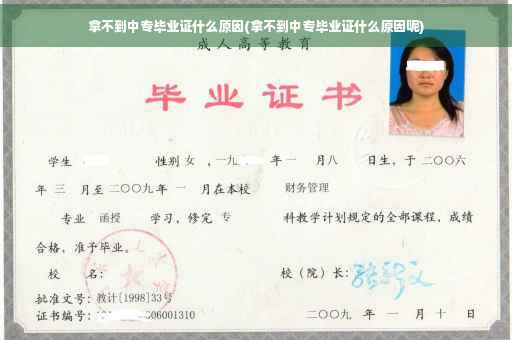 拿不到中专毕业证什么原因(拿不到中专毕业证什么原因呢)
成人高等教育
毕业证书
学生 性别 女 ,一九 年一 月八 日生,于二〇〇六
年 三 月至二〇〇九年 一 月在本校 财务管理
专业 函授 学习,修完 专 科教学计划规定的全部课程,成绩
合格,准予毕业。
校 名: 校(院)长:
批准文号:教计[1998]33号
证书编号: 06001310 二〇〇九 年 一 月 十 日